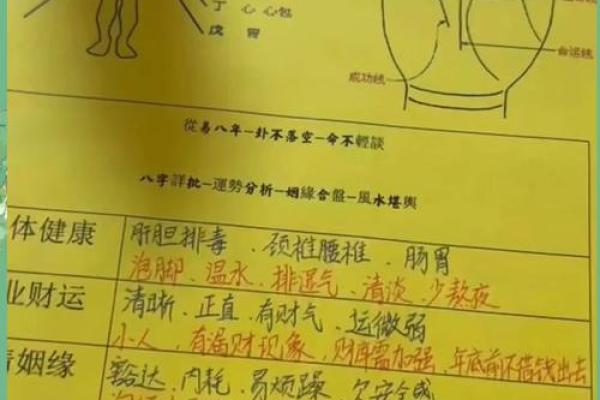 丁 心 心包
戊 胃
命运线
成功线
從易八年-卦不落空-命不輕談
八字詳批-運勢分析-姻緣合盤-風水堪輿
体健康
肝胆排毒、颈椎腰椎、肠胃
泡脚、温水、排湿气、清淡、少熬夜
业财运
清晰、正直、有财气、运微弱
小人、有漏财现象、财库需加强、年底前不借钱出去
姻缘
豁达、内耗、易烦躁、欠安全感